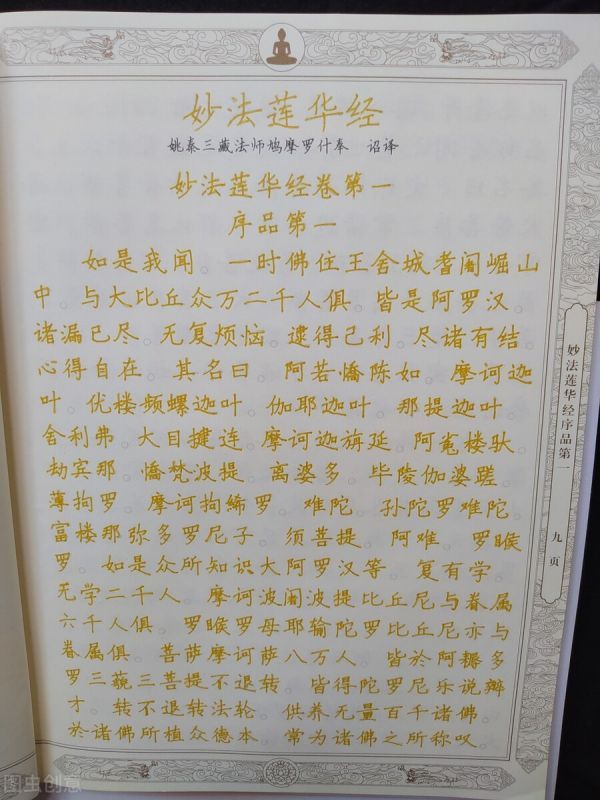 妙法莲华经
姚秦三藏法师鸠摩罗什奉 诏译
妙法莲华经卷第一
序品第一
如是我闻。一时佛住王舍城耆阇崛山
中。与大比丘众万二千人俱。皆是阿罗汉。
诸漏已尽。无复烦恼。逮得己利。尽诸有结。
心得自在。其名曰。阿若憍陈如。摩诃迦
叶。优楼频螺迦叶。伽耶迦叶。那提迦叶。
舍利弗。大目揵连。摩诃迦旃延。阿㝹楼驮。
劫宾那。憍梵波提。离婆多。毕陵伽婆蹉。
薄拘罗。摩诃拘絺罗。难陀。孙陀罗难陀。
富楼那弥多罗尼子。须菩提。阿难。罗睺
罗。如是众所知识大阿罗汉等。复有学。
无学二千人。摩诃波阇波提比丘尼与眷属
六千人俱。罗睺罗母耶输陀罗比丘尼亦与
眷属俱。菩萨摩诃萨八万人。皆於阿耨多
罗三藐三菩提不退转。皆得陀罗尼乐说辩
才。转不退转法轮。供养无量百千诸佛。
於诸佛所植众德本。常为诸佛之所称叹
妙法莲华经序品第一
九页
图虫创意